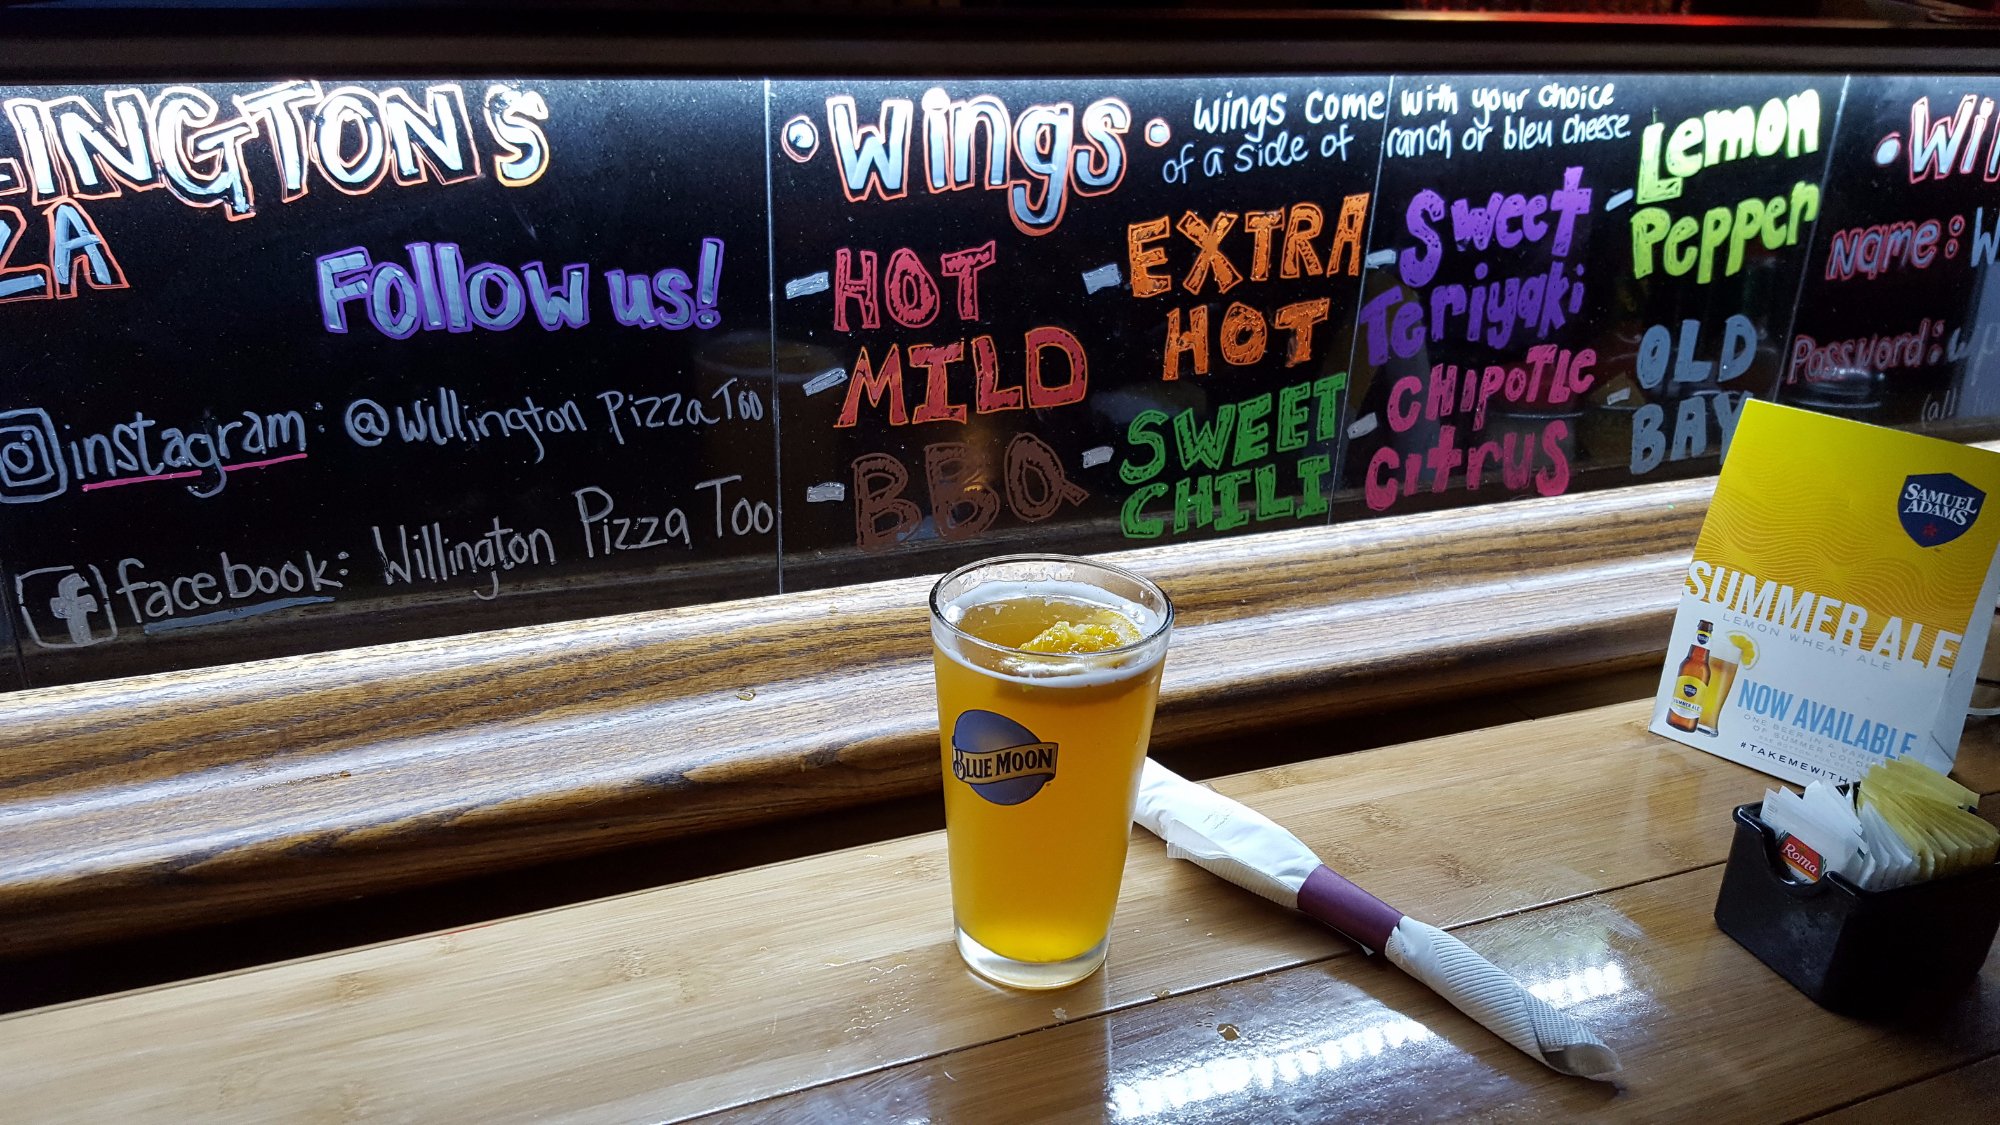 LINGTON'S
ZZA
Follow us!
instagram: @willington Pizza Too
facebook: Willington Pizza Too
• Wings •
Wings come with your choice
of a side of ranch or bleu cheese.
- HOT
- MILD
- BBQ
- EXTRA
HOT
- SWEET
CHILI
- Sweet
Teriyaki
- CHIPOTLE
Citrus
- Lemon
Pepper
- OLD
BAY
• Wi
Name: W
Password: w
(all
BLUE MOON
SAMUEL
ADAMS
SUMMER ALE
LEMON WHEAT ALE
NOW AVAILABLE
ONE BEER IN A
OF SUMMER
#TAKEMEWITH
Roma